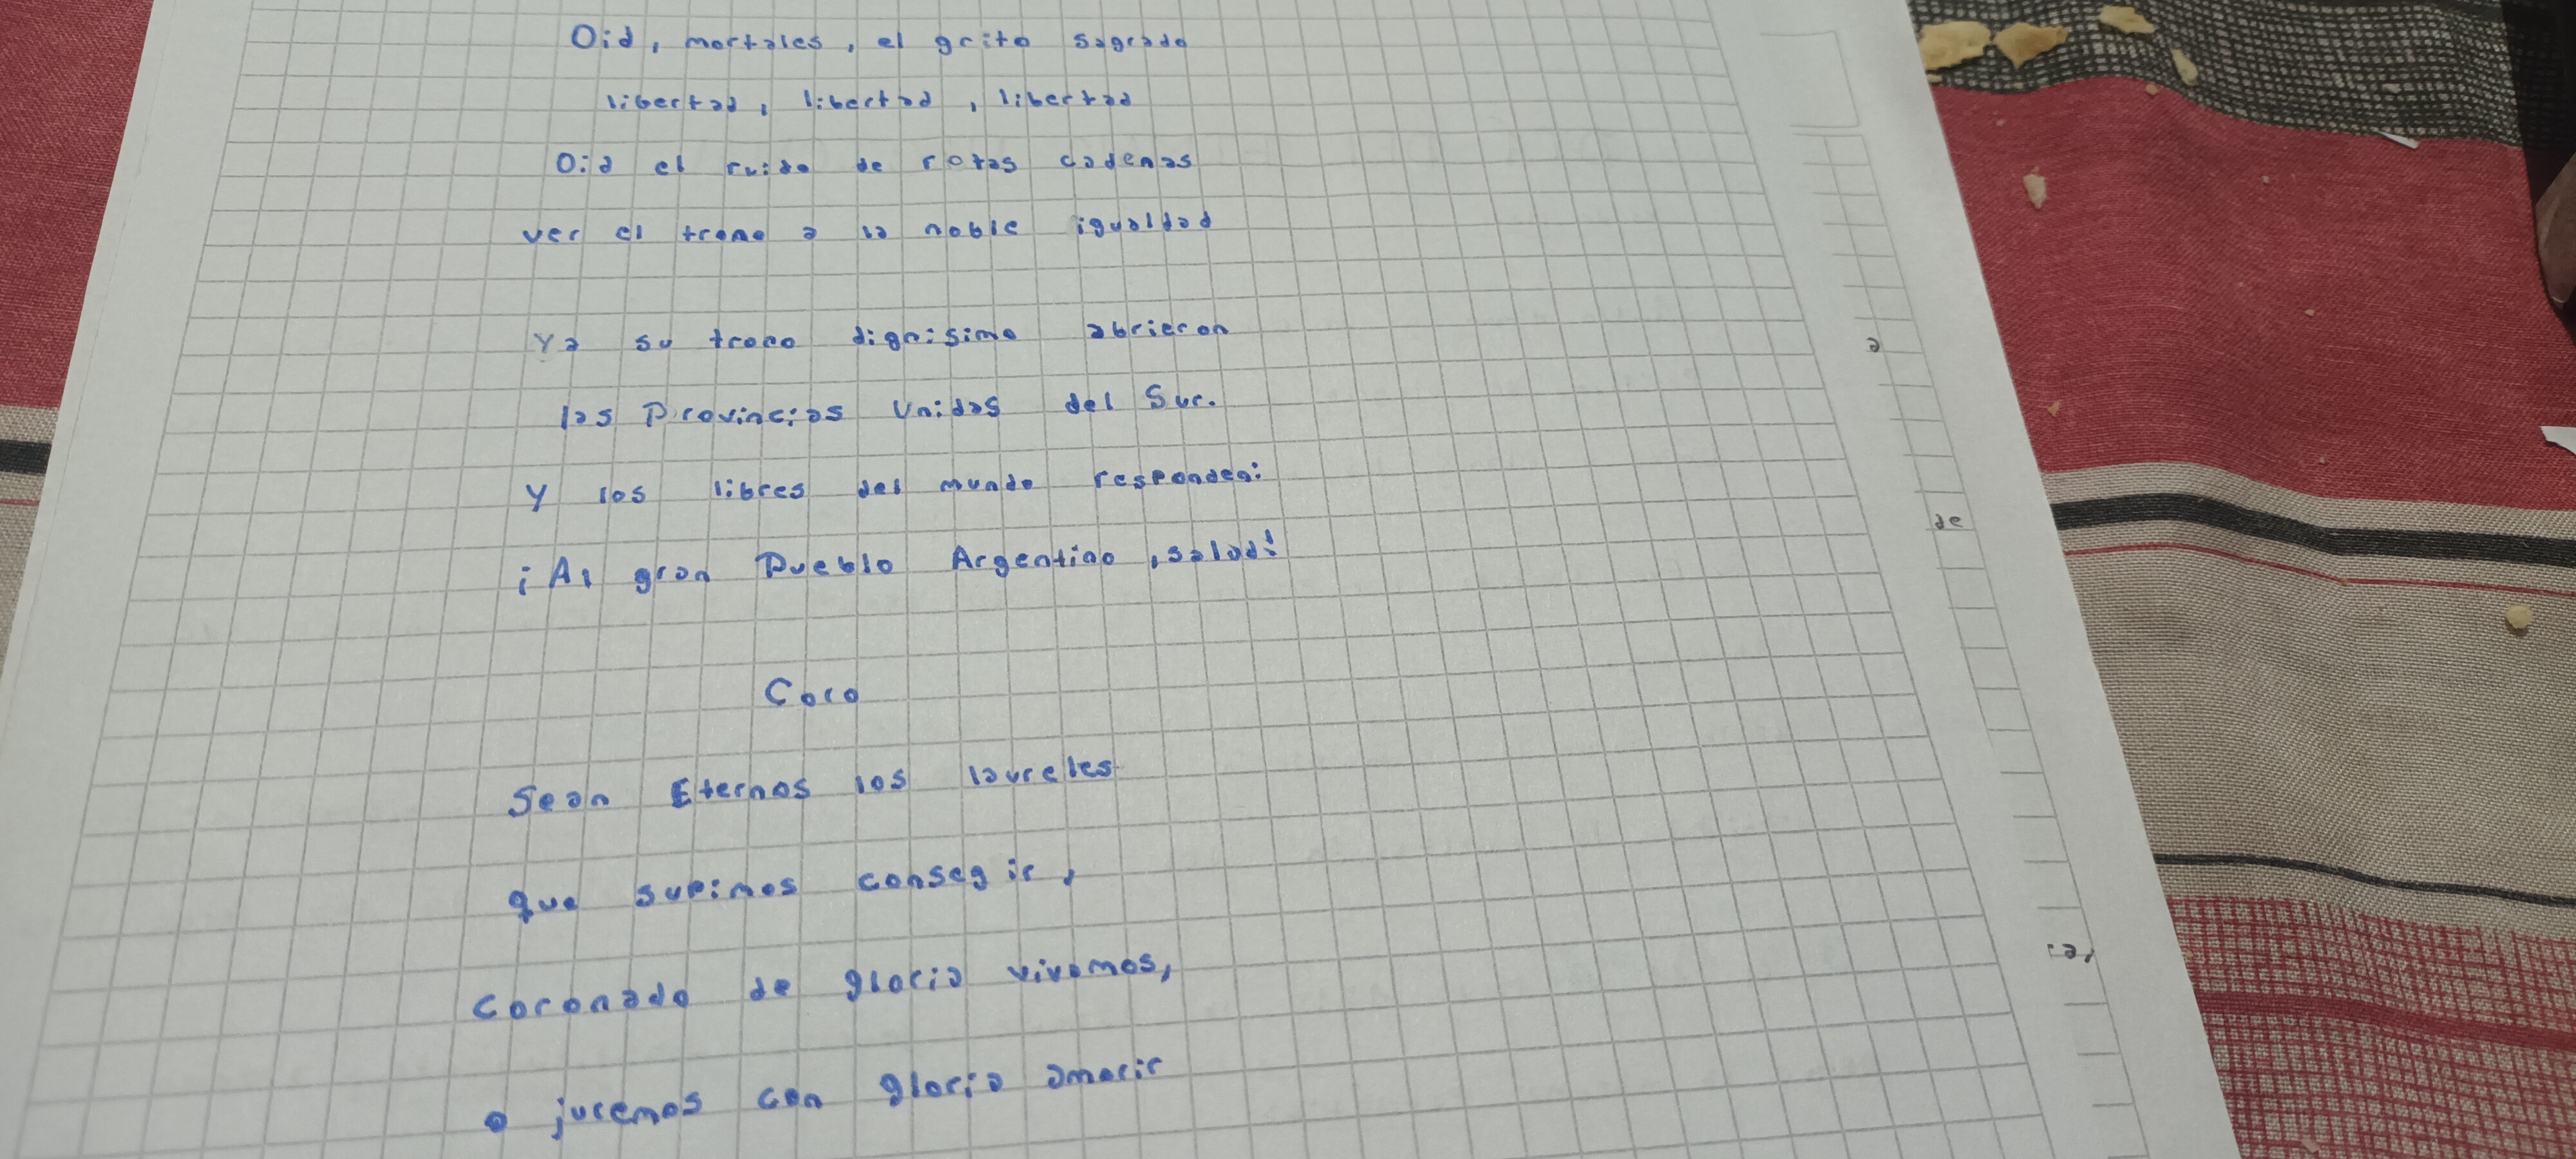 Oid, mortales, el grito sagrado
libertad, libertad, libertad
Oid el ruido de rotas cadenas
ver el trono a la noble igualdad
Ya su trono dignisimo abrieron
las Provincias Unidas del Sur.
Y los libres del mundo responden:
¡Al gran Pueblo Argentino, salud!
Coro
Sean Eternos los laureles
que supimos consegir,
coronado de gloria vivamos,
o juremos con gloria amorir
a
de